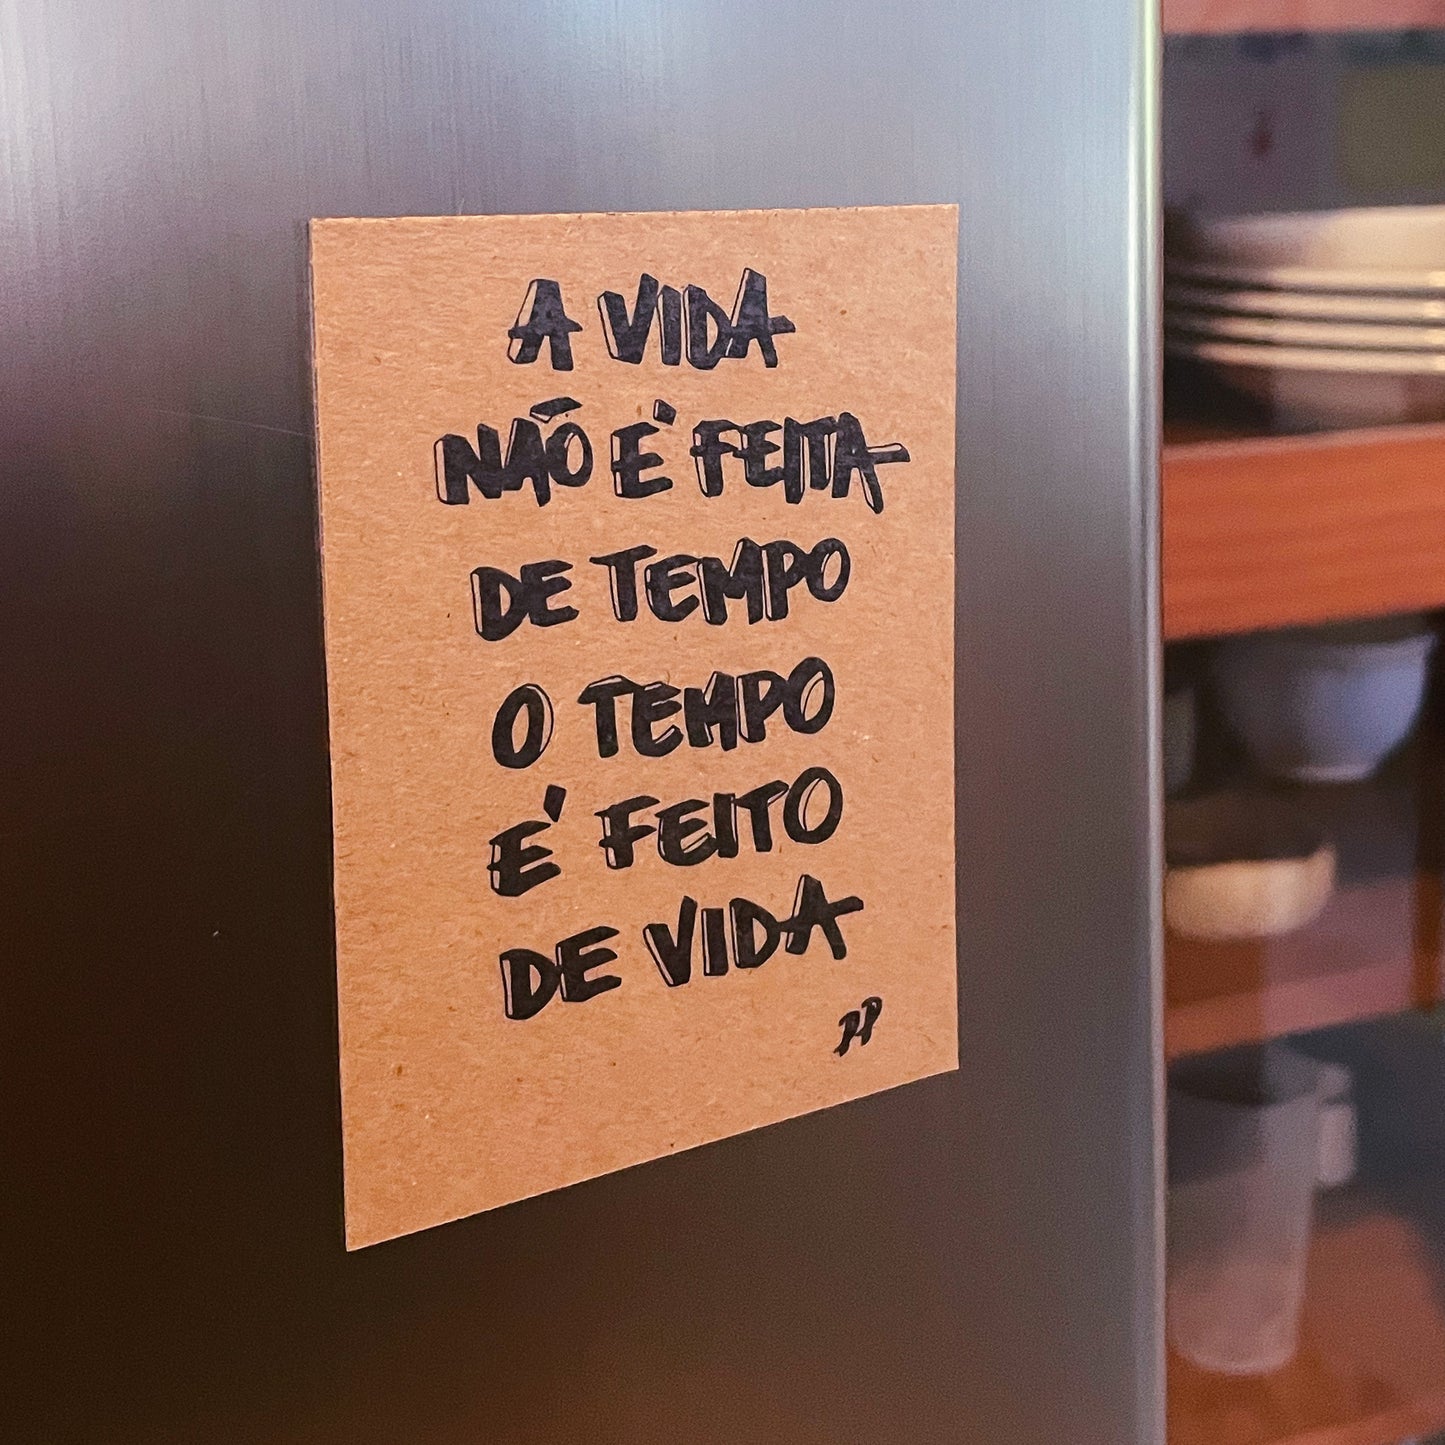 A VIDA
NÃO É FEITA
DE TEMPO
O TEMPO
É FEITO
DE VIDA
PP